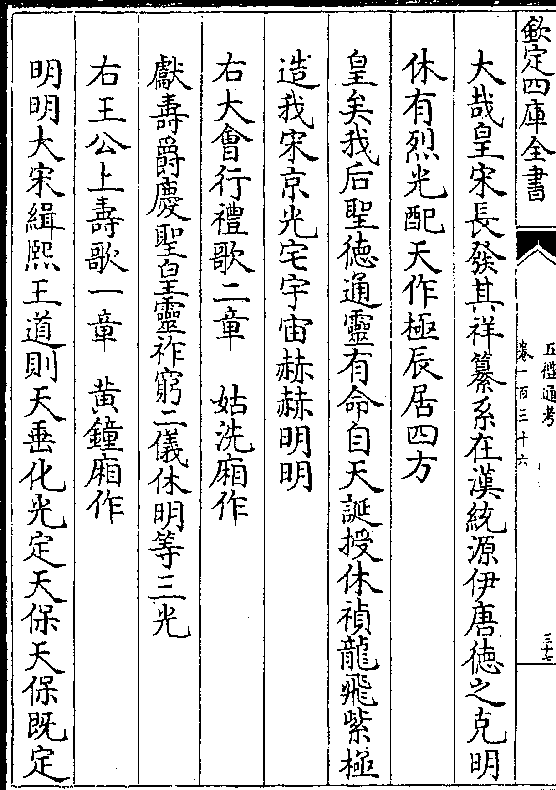 欽定四庫全書
五禮通考
卷一百三十六
三十七
大哉皇宋長發其祥纂系在漢統源伊唐徳之克明
休有烈光配天作極辰居四方
皇矣我后聖徳通靈有命自天誕授休禎龍飛紫極
造我宋京光宅宇宙赫赫明明
右大會行禮歌二章　姑洗廂作
獻壽爵慶聖皇靈祚窮二儀休明等三光
右王公上壽歌一章　黄鐘廂作
明明大宋緝熙王道則天垂化光定天保天保既定